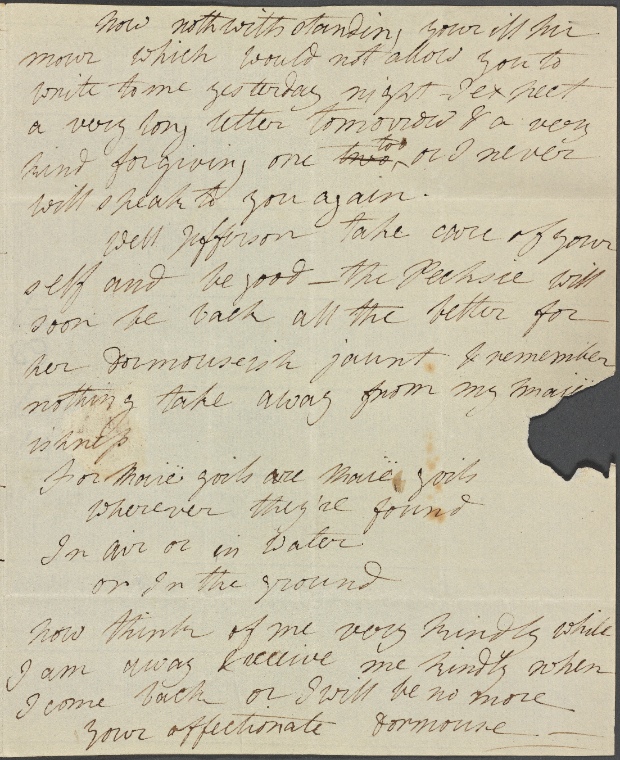 Now nothwithstanding your ill hu
mour which would not allow you to
write to me yesterday night I expect
a very long letter tomorrow & a very
kind forgiving one two to, or I never
will speak to you again.
Well Jefferson take care of your
self and be good – the Pecksie will
soon be back all the better for
her Dormouseish jaunt & remember
nothing take away from my Maië
ishness
For Maië gails are Maië gails
Wherever they're found
In air or in Water
or In the ground
Now think of me very kindly while
I am away & receive me kindly when
I come back or I will be no more
Your affectionate Dormouse